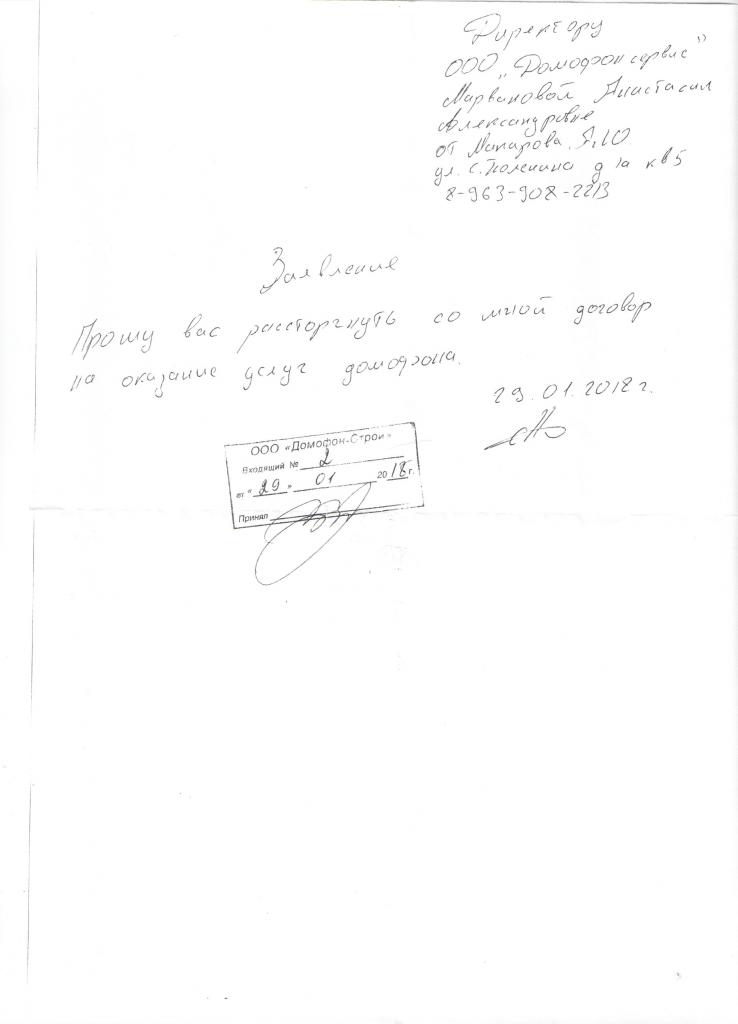 Директору
ООО „Домофон сервис"
Марвановой Анастасии
Александровне
от Макарова. А.Ю
ул. С.Тюленина д 1а кв 5
8-963-908-2213
Заявление
Прошу вас рассторгнуть со мной договор
на оказание услуг домофона.
29.01.2018 г.
ООО «Домофон-Строй»
Входящий № 2
от «29» 01 2018 г.
Принял